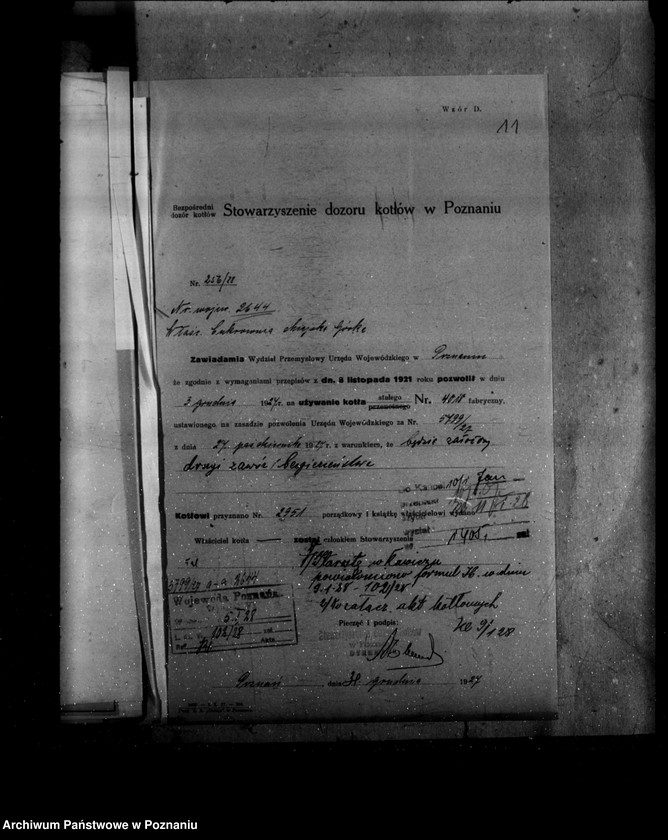 Wzór D.
11
Bezpośredni
dozór kotłów
Stowarzyszenie dozoru kotłów w Poznaniu
Nr. 256/28
Nr. wojew. 2644
Włas. Cukrownia Miejska Górka
Zawiadamia Wydział Przemysłowy Urzędu Wojewódzkiego w Poznaniu
że zgodnie z wymaganiami przepisów z dn. 6 listopada 1921 roku pozwolił w dniu
3 grudnia 1927 r. na używanie kotła stałego przenośnego Nr. 4018 fabryczny,
ustawionego na zasadzie pozwolenia Urzędu Wojewódzkiego za Nr. 5799/27
z dnia 27 październik 1927 r. z warunkiem, że będzie założony
drugi zawór bezpieczeństwa
10/1
Kotłowi przyznano Nr. 2951 porządkowy i książkę właścicielowi wydano
Właściciel kotła — został członkiem Stowarzyszenia
1) Starostę w Rawiczu
powiadomiono formul. 76. w dniu
9.1.28 - 102/28
5799/27 2644
Wojewoda Poznański
5. I. 28
L. dz. 102/28
2) do załącz. akt kotłowych
Pieczęć i podpis:
9/1 28
Poznań dnia 31 grudnia 1927
Archiwum Państwowe w Poznaniu